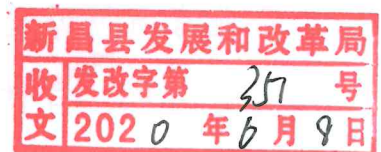 新昌县发展和改革局
收文
发改字第 351 号
2020 年 6 月 9 日